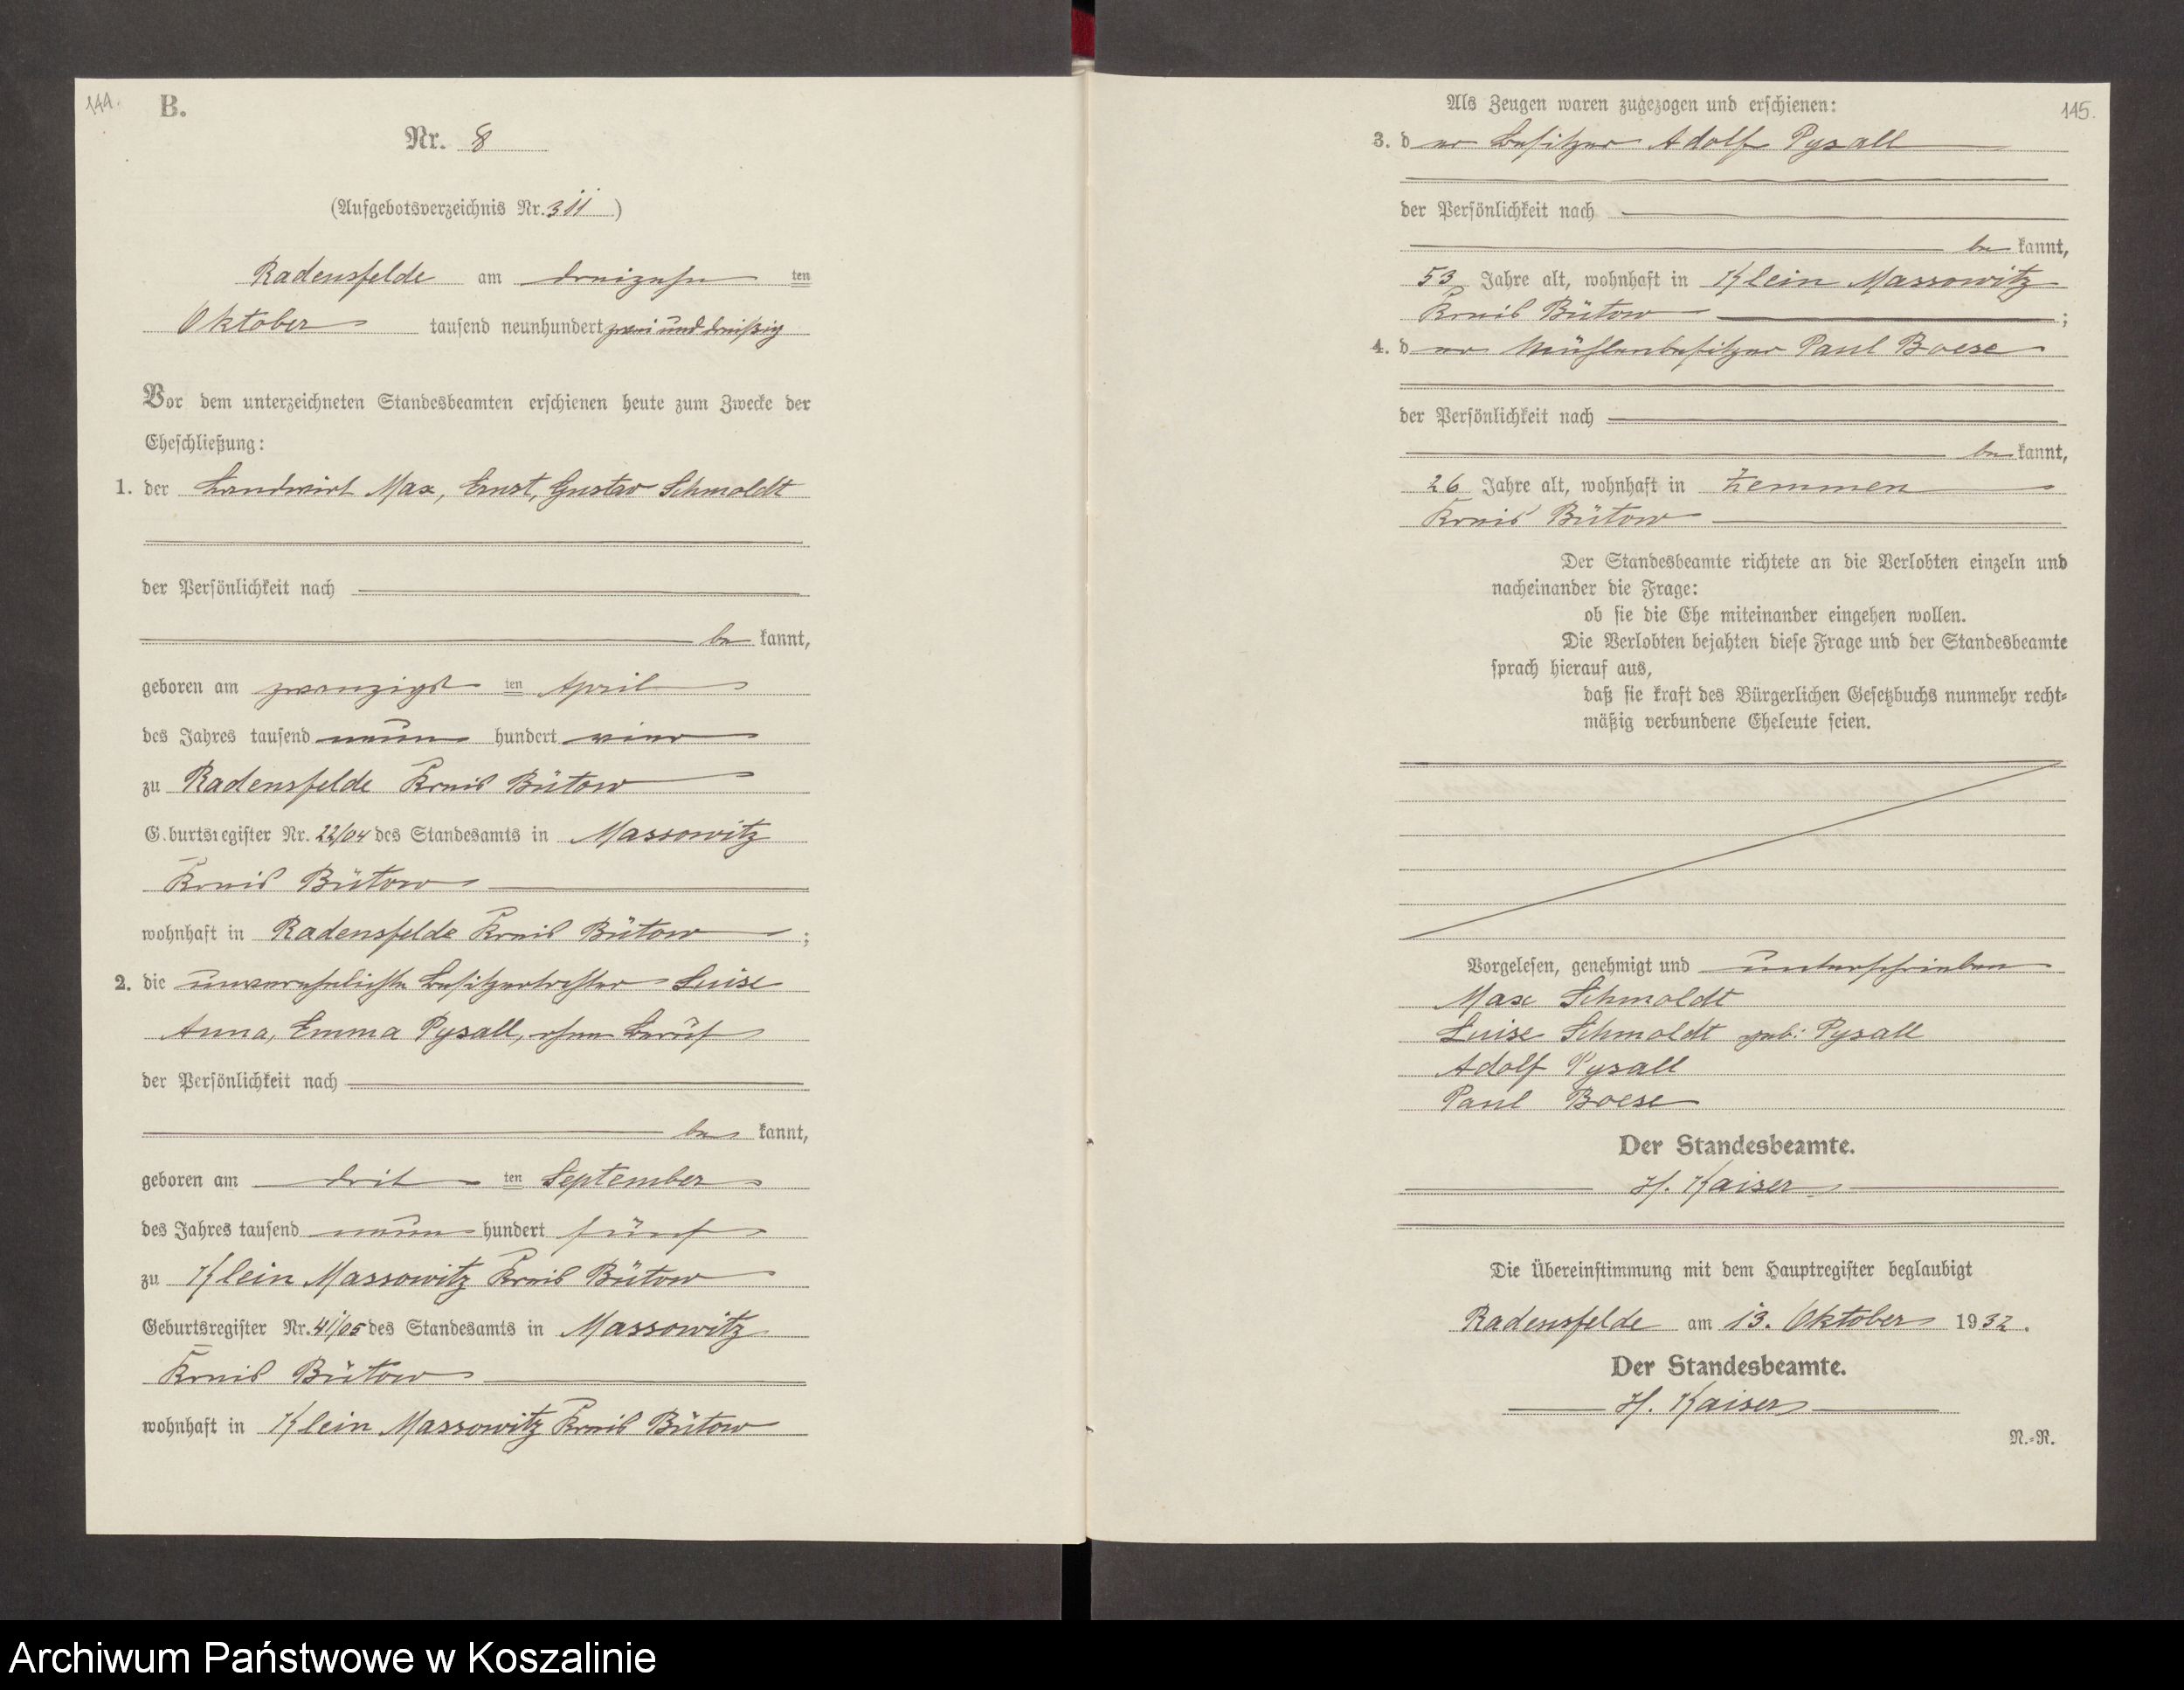 144.
B.
Nr. 8
(Aufgebotsverzeichnis Nr. 311)
Radensfelde am dreizehn ten
Oktober tausend neunhundert zwei und dreißig
Vor dem unterzeichneten Standesbeamten erschienen heute zum Zwecke der
Eheschließung:
1. der Landwirt Max, Ernst, Gustav Schmoldt
der Persönlichkeit nach
be kannt,
geboren am zwanzigst ten April
des Jahres tausend neun hundert vier
zu Radensfelde Kreis Bütow
G.burtsregister Nr. 22/04 des Standesamts in Massowitz
Kreis Bütow
wohnhaft in Radensfelde Kreis Bütow ;
2. die unverehelichte Besitzertochter Luise
Anna, Emma Pysall, ohne Beruf
der Persönlichkeit nach
be kannt,
geboren am drit ten September
des Jahres tausend neun hundert fünf
zu Klein Massowitz Kreis Bütow
Geburtsregister Nr. 41/05 des Standesamts in Massowitz
Kreis Bütow
wohnhaft in Klein Massowitz Kreis Bütow
145.
Als Zeugen waren zugezogen und erschienen:
3. d er Besitzer Adolf Pysall
der Persönlichkeit nach
be kannt,
53 Jahre alt, wohnhaft in Klein Massowitz
Kreis Bütow ;
4. d er Mühlenbesitzer Paul Boese
der Persönlichkeit nach
be kannt,
26 Jahre alt, wohnhaft in Zemmen
Kreis Bütow
Der Standesbeamte richtete an die Verlobten einzeln und
nacheinander die Frage:
ob sie die Ehe miteinander eingehen wollen.
Die Verlobten bejahten diese Frage und der Standesbeamte
sprach hierauf aus,
daß sie kraft des Bürgerlichen Gesetzbuchs nunmehr recht-
mäßig verbundene Eheleute seien.
Vorgelesen, genehmigt und unterschrieben
Max Schmoldt
Luise Schmoldt geb. Pysall
Adolf Pysall
Paul Boese
Der Standesbeamte.
H. Kaiser
Die Übereinstimmung mit dem Hauptregister beglaubigt
Radensfelde am 13. Oktober 1932.
Der Standesbeamte.
H. Kaiser
N.-R.
Archiwum Państwowe w Koszalinie